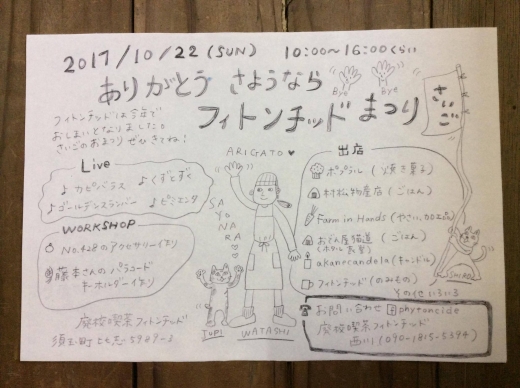 2017/10/22 (SUN) 10:00~16:00くらい
ありがとう さようなら
Bye Bye
フィトンチッド まつり
さいご
フィトンチッドは今年で
おしまいとなりました。
さいごのおまつり ぜひきてね!
Live
♪カピバラス ♪くずとずく
♪ゴールデンスランバー ♪ピンエンタ
WORKSHOP
No.428のアクセサリー作り
藤本さんのパラコード
キーホルダー作り
廃校喫茶フィトンチッド
須玉町比志
ARIGATO ♥
SAYONARA
TUPI
WATASHI
出店
ポプラル (焼き菓子)
村松物産店 (ごはん)
Farm in Hands (やさい、加工品)
おでん屋猫道 (ごはん)
akaricandola (キャンドル)
フィトンチッド (のみもの)
その他いろいろ
SHIRO
お問い合わせ phytoncide
廃校喫茶フィトンチッド
西川 (090-1815-5394)